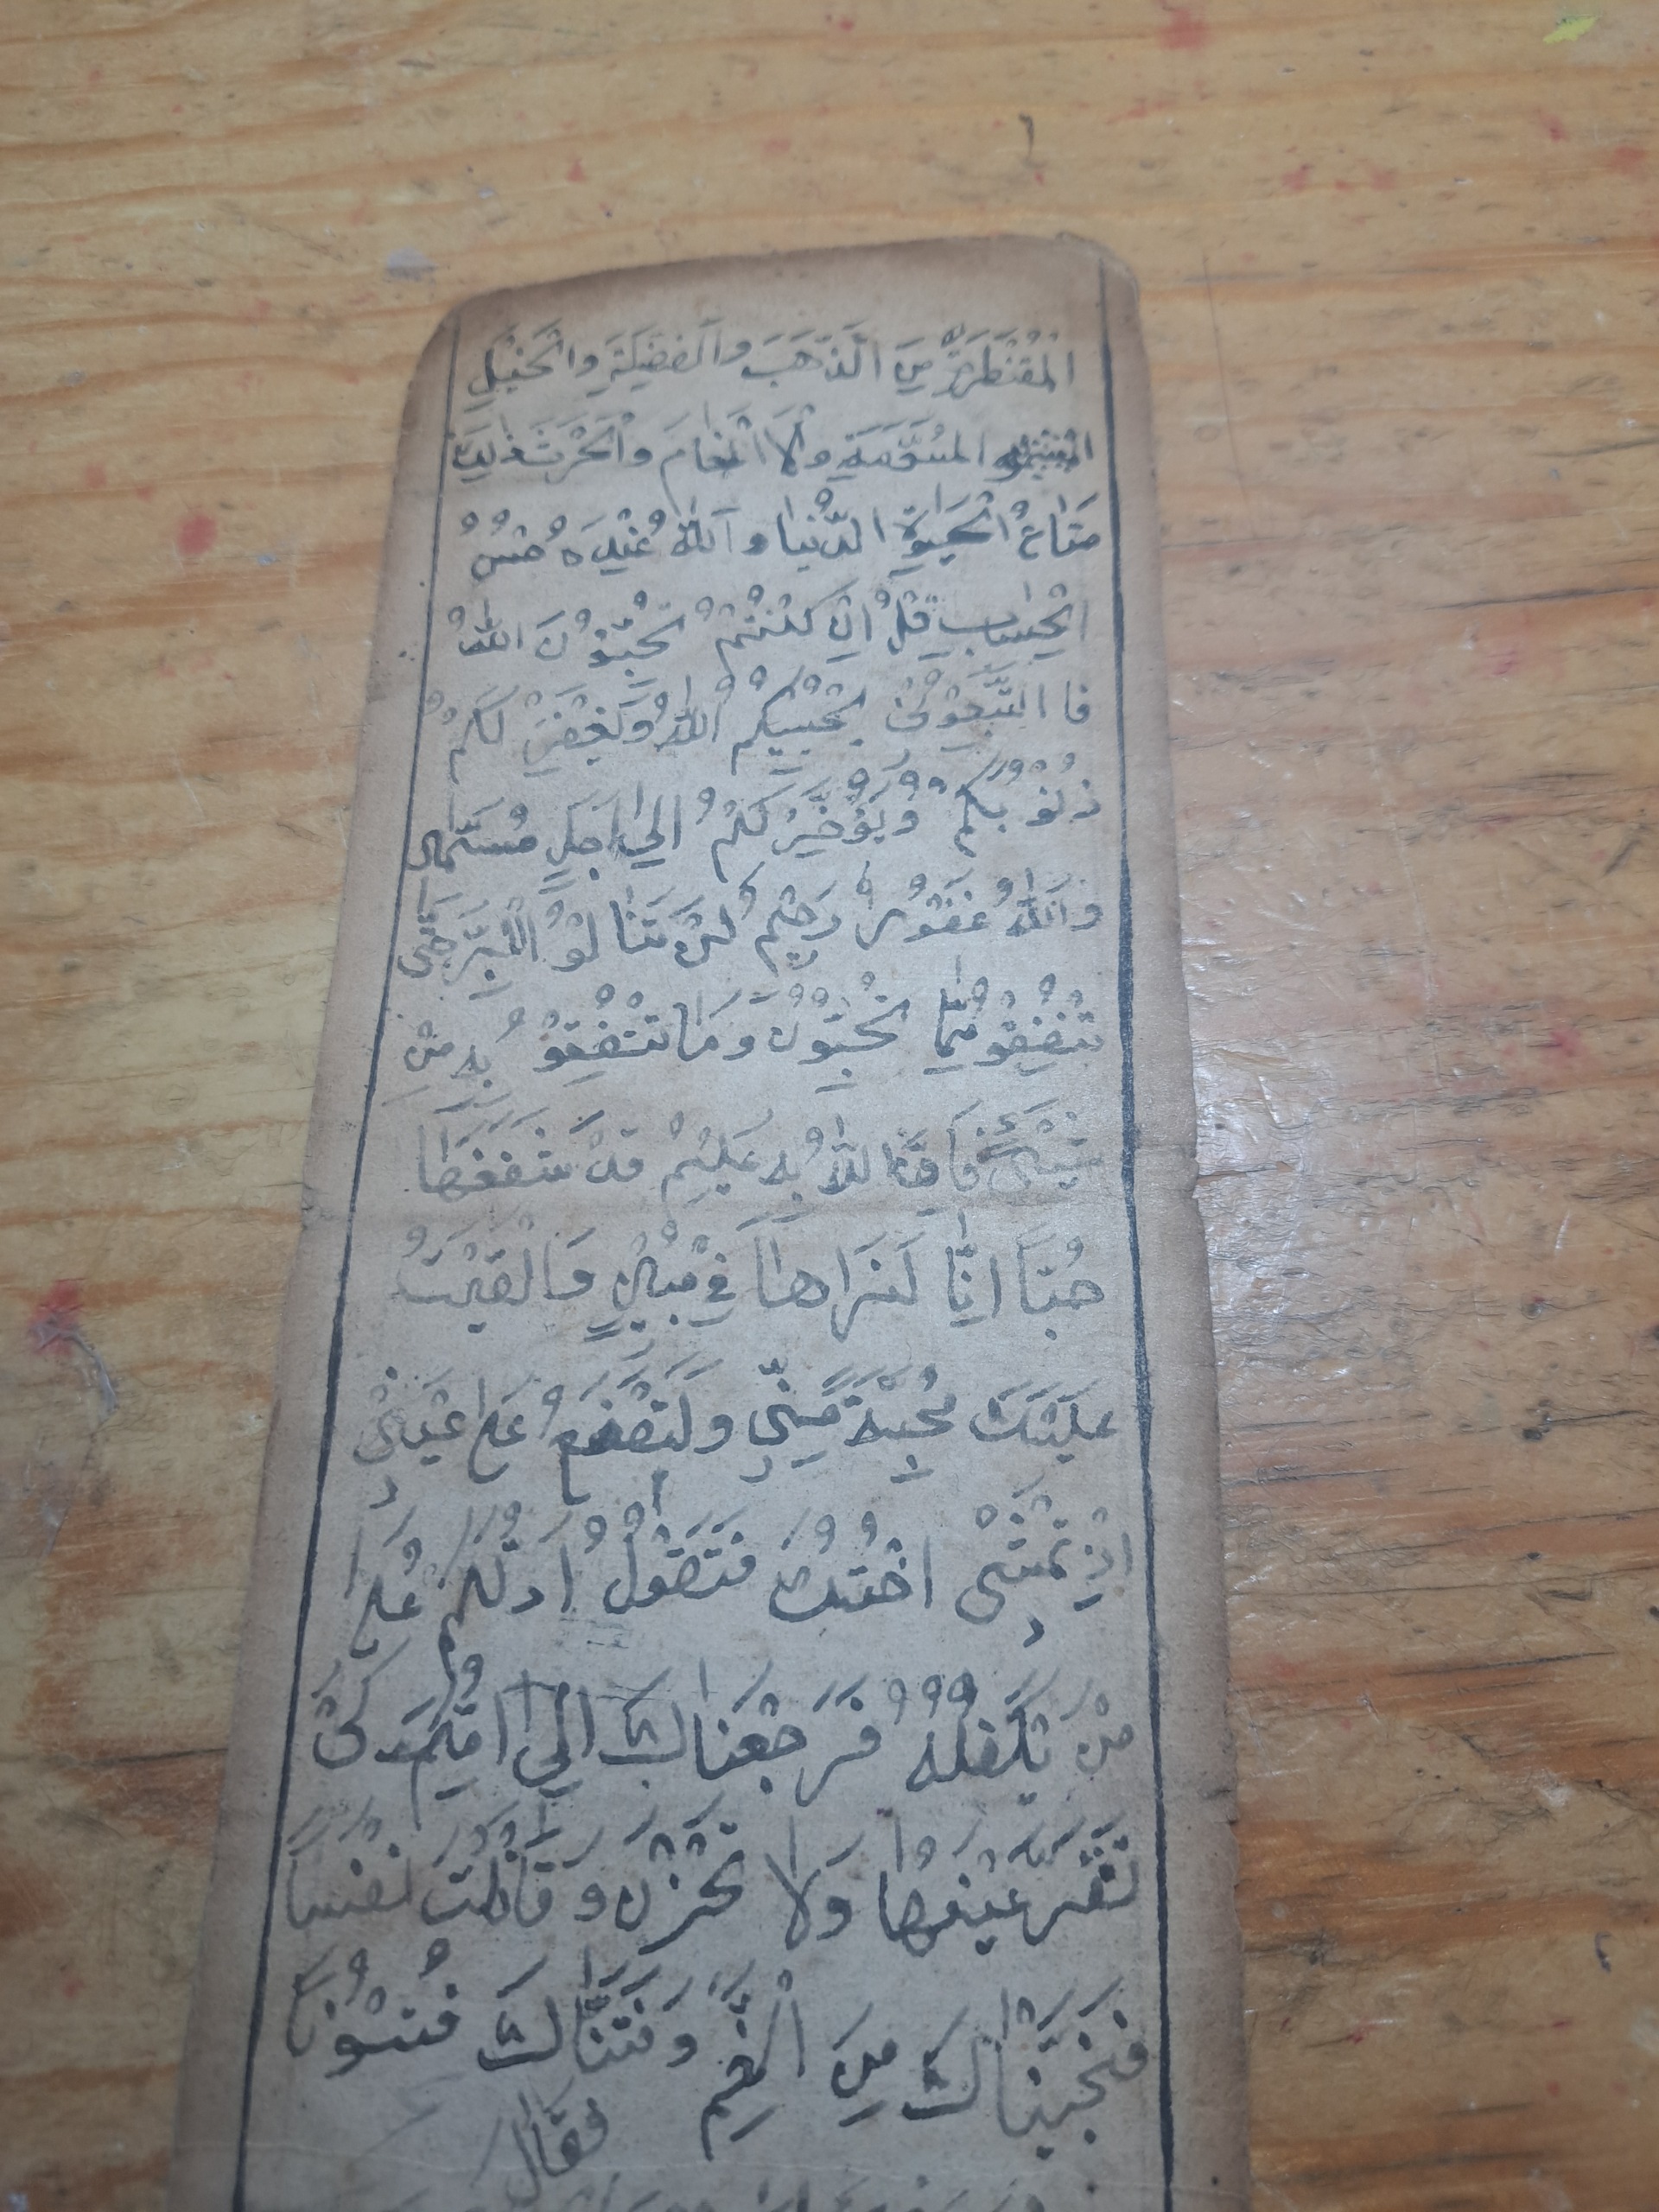 الْمُقَنْطَرَةِ مِنَ الذَّهَبَ وَالفضيَّةِ وَالْخَيْلِ
المُسَوَّمَةِ وَلَا انْعَامَ وَالْحَرْثَ ذٰلِكَ
مَتَاعُ الْحَيٰوةِ الدُّنْيَا وَاللّٰهُ عِنْدَهُ حُسْنُ
الْحِسَابِ قُلْ اِنْ كُنْتُمْ تُحِبُّوْنَ اللّٰهُ
فَا اتَّبِعُوْنِيْ يُحْبِبْكُمْ اللّٰهُ وَيَغْفِرَ لَكُمْ
ذُنُوْ بَكُمْ وَيُؤَخِّرُ كُمْ اِلٰى اَجَلٍ مُسَمّٰى
وَاللّٰهُ غَفُوْرٌ رَحِيْمُ لَنْ تَنَا لُوْ الْبِرَّ حَتّٰى
تُنْفِقُوْ مِمَّا تُحِبُّوْنَ وَمَا تُنْفِقُوْ بُهِ مِنْ
شَيْئٍ فَاِنَّ اللّٰهُ بُهِ عَلِيْمُ قَدْ شَغَفَهَا
حُبَّا اِنَّا لَنَرَاهَا فِيْ مُبِيْنٍ وَالْقَيْتُ
عَلَيْكَ مُحَبَّةً مِّنِّى وَلَتُصْنَعَ عَلٰى عَيْنِيْ
اِذْ تَمْشِىْ اخْتُكَ فَتَقُوْلُ اَدُلُّكُمْ عَلٰى
مَنْ يَكْفُلُهُ فَرَجَعْنَاكَ اِلٰى اُمِّكَ كَىْ
تَقَرَ عَيْنُهَا وَلَا تَحْزَنْ وَقَتَلْتَ نَفْسًا
فَنَجَّيْنَاكَ مِنَ الْغَمِّ وَفَتَنَّاكَ فُتُوْنًا
فَقَالَ